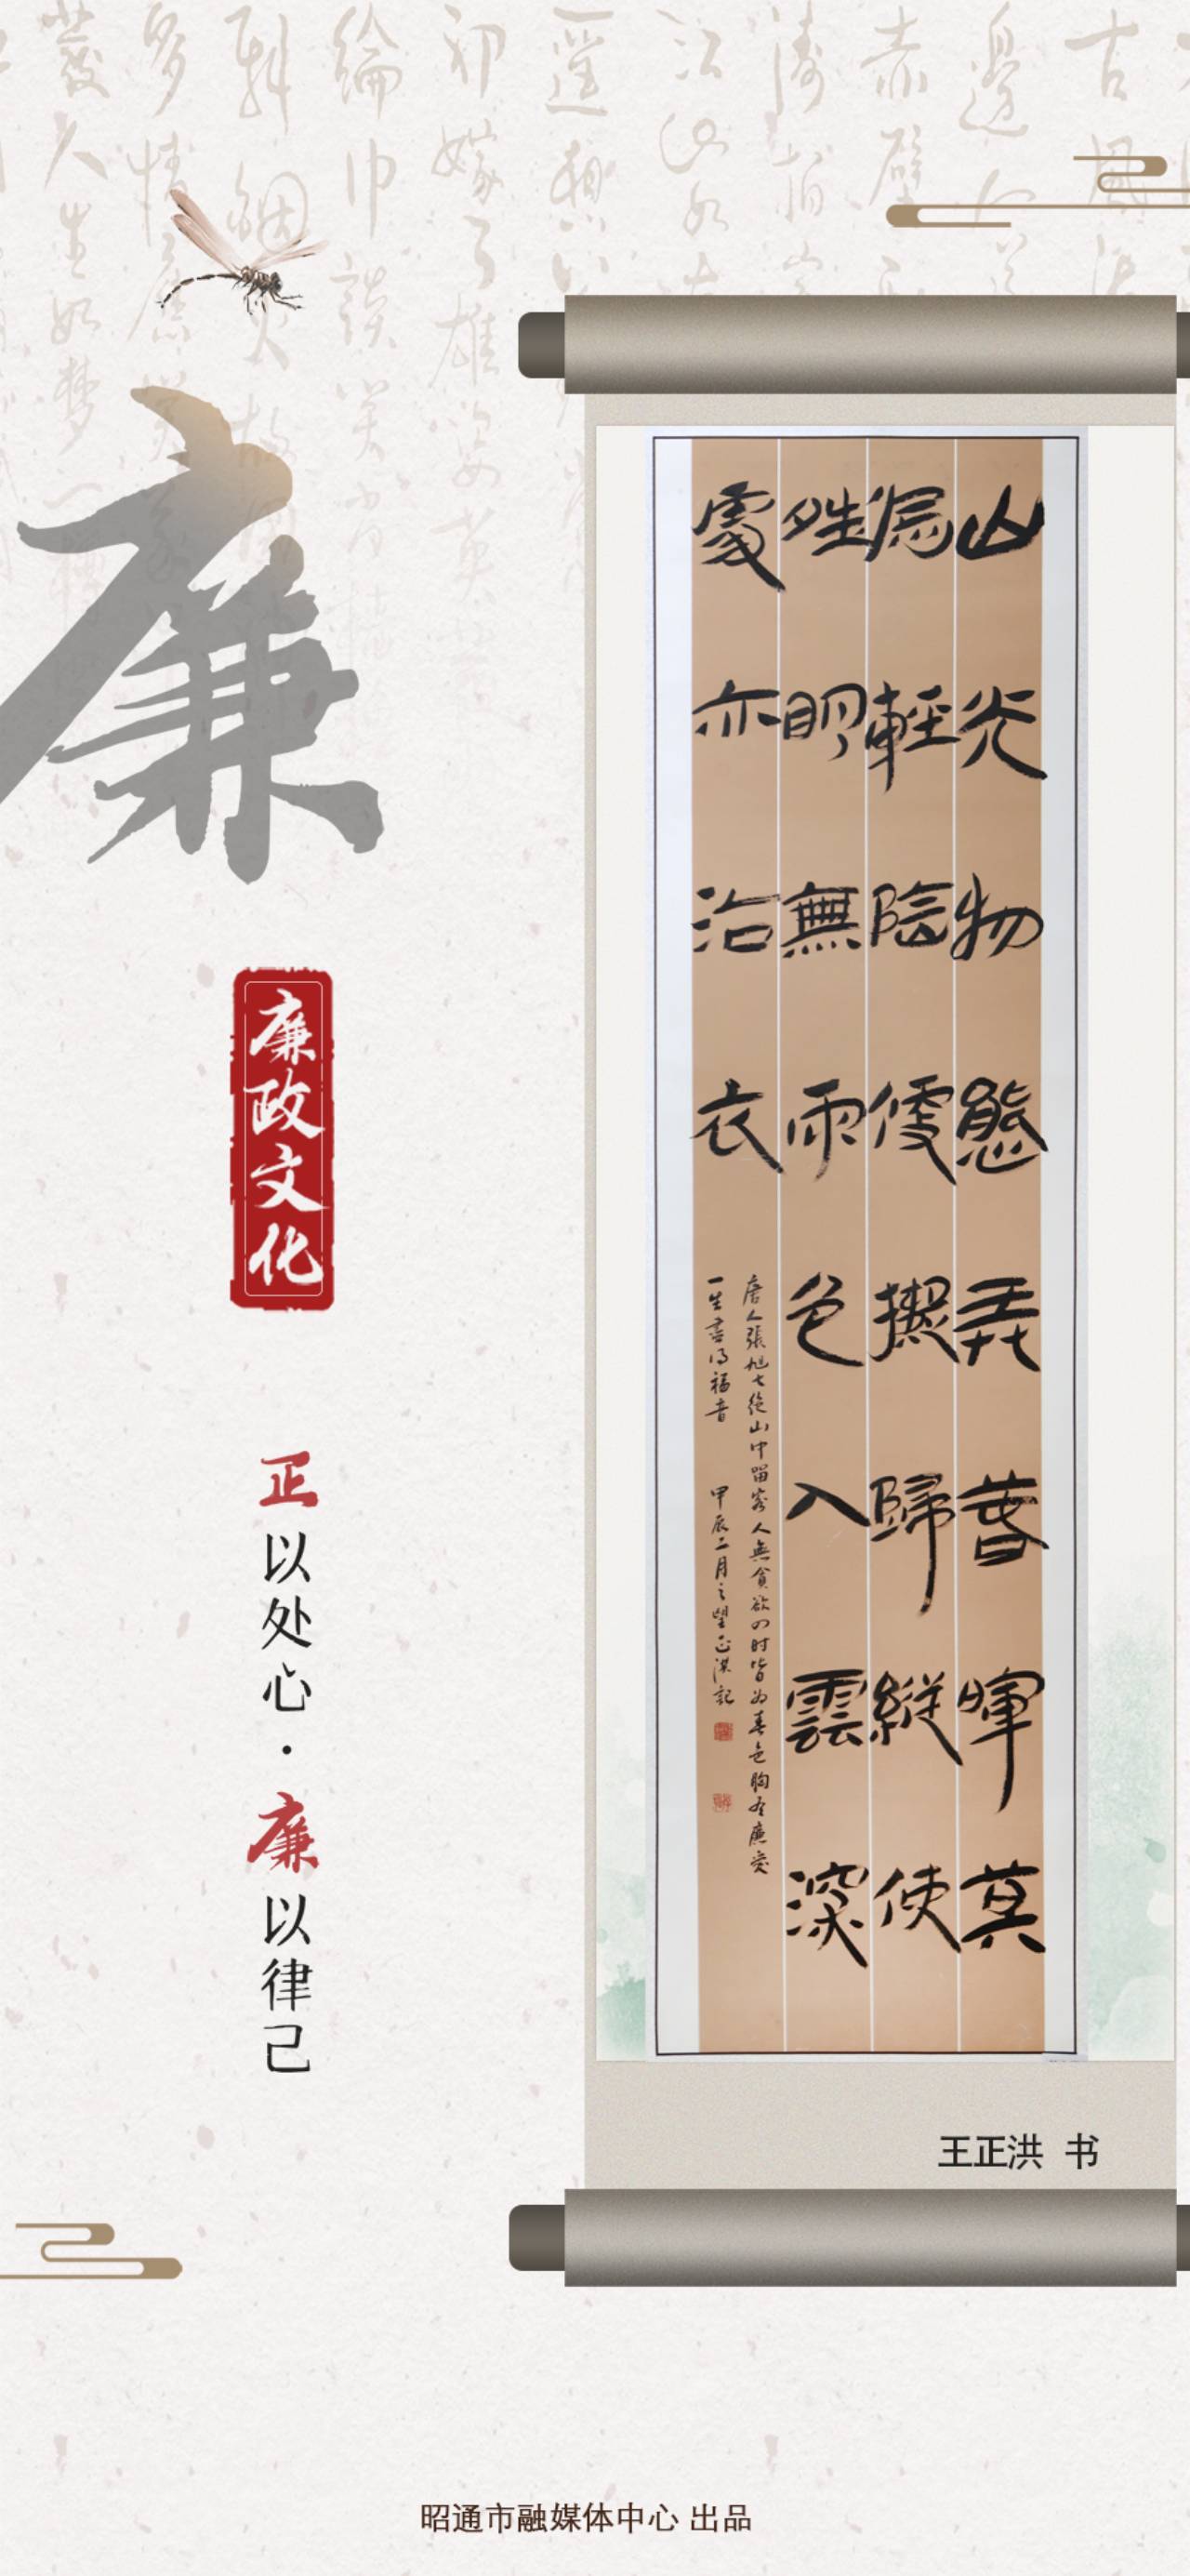 廉
廉政文化
正以处心·廉以律己
山光物態弄春暉莫
為輕陰便擬歸縱使
晴明無雨色入雲深
處亦沾衣
唐人張旭七絕山中留客人無貪欲四时皆为春色胸
一生得福音 甲辰二月之望正洪記
王正洪 书
昭通市融媒体中心 出品